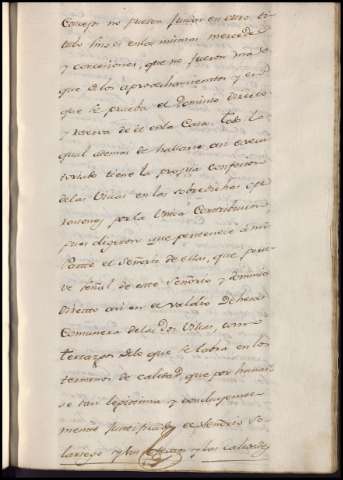 Concejo no pueden fundar en otro ti
tulo sino en las mismas mercedes
y concesiones, que no fueron mas
que de los aprovechamientos y en
que se prueba el Dominio directo
y reserva de el en la Casa. Todo lo
qual ademas de hallarse asi execu
toriado tiene la propia confesion
de las Villas en las sobredichas ope
raciones por la Unica Contribucion,
pues digeron que pertenecia à mi
Parte el Señorio de ellas, que
ve señal de este Señorio y dominio
Directo asi en el valdio Dehesa
Comunera de las dos Villas, como
Terrazgo de lo que se labra en los
terrenos de calidad, que por
se dan legitima y concluyente
mente justificados el Señorio So
lariego y las